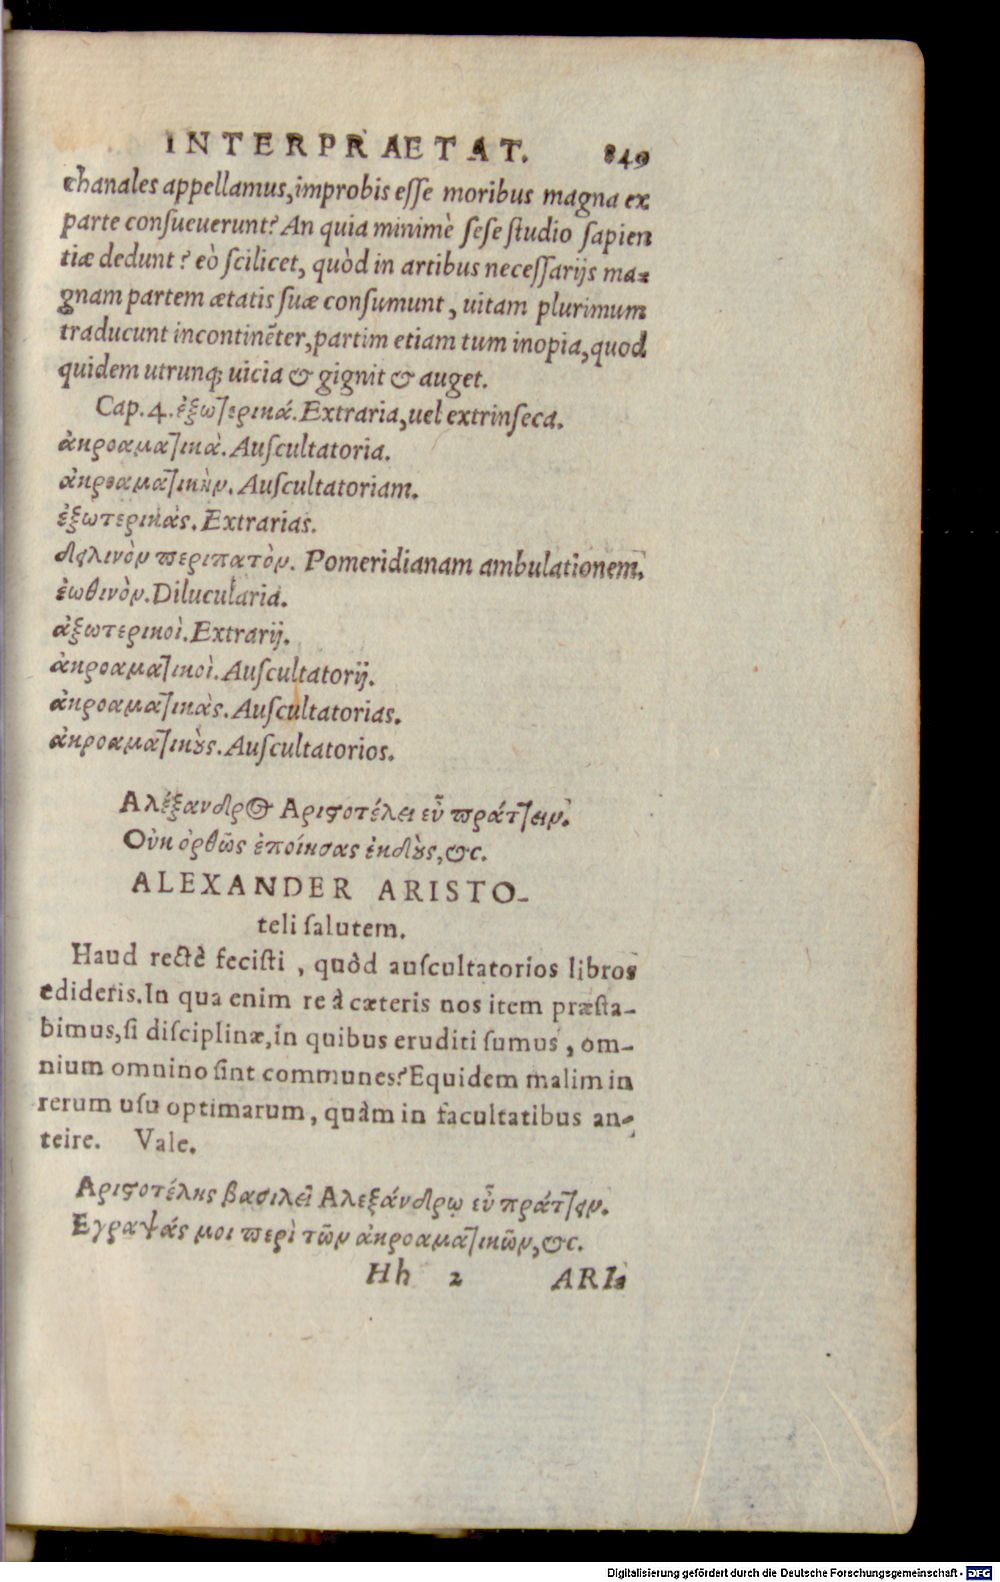 INTERPRAETAT. 849
chanales appellamus,improbis eſſe moribus magna ex
parte conſueuerunt? An quia minimè ſeſe ſtudio ſapien
tiæ dedunt? eò ſcilicet, quòd in artibus neceſſarijs ma-
gnam partem ætatis ſuæ conſumunt, uitam plurimum
traducunt incontinẽter,partim etiam tum inopia,quod
quidem utrunq; uicia & gignit & auget.
Cap.4.ἐξωτερικά.Extraria,uel extrinſeca.
ἀκροαματικὰ.Auſcultatoria.
ἀκροαματικὴν.Auſcultatoriam.
ἐξωτερικὰς.Extrarias.
δειλινὸν περιπατὸν. Pomeridianam ambulationem.
ἑωθινὸν.Dilucularia.
ἀξωτερικοὶ.Extrarij.
ἀκροαματικοὶ.Auſcultatorij.
ἀκροαματικὰς.Auſcultatorias.
ἀκροαματικȣ̀ς.Auſcultatorios.
Αλέξανδρος Αριϛοτέλει εὖ πράττειν.
Οὐκ ὀρθῶς ἐποίησας ἐκδȣ̀ς,&c.
ALEXANDER ARISTO-
teli ſalutem.
Haud rectè feciſti, quòd auſcultatorios libros
edideris.In qua enim re à cæteris nos item præſta-
bimus,ſi diſciplinæ,in quibus eruditi ſumus, om-
nium omnino ſint communes?Equidem malim in
rerum uſu optimarum, quàm in facultatibus an-
teire. Vale.
Αριϛοτέλης βασιλεῖ Αλεξάνδρῳ εὖ πράττειν.
Εγραψάς μοι περὶ τῶν ἀκροαματικῶν,&c.
Hh 2 ARI-
Digitalisierung gefördert durch die Deutsche Forschungsgemeinschaft - DFG